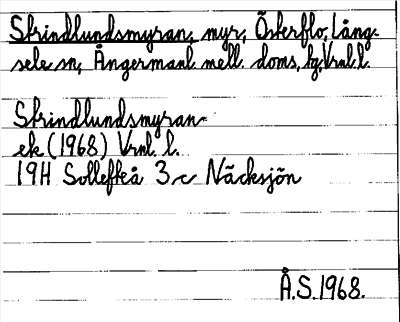 Strindlundsmyran, myr, Österflo, Lång-
sele sn, Ångermanl. mell. doms, hg, Vrnl. l.
Strindlundsmyran
ek (1968) Vrnl. l.
19H Sollefteå 3 c Näcksjön
Å.S. 1968.